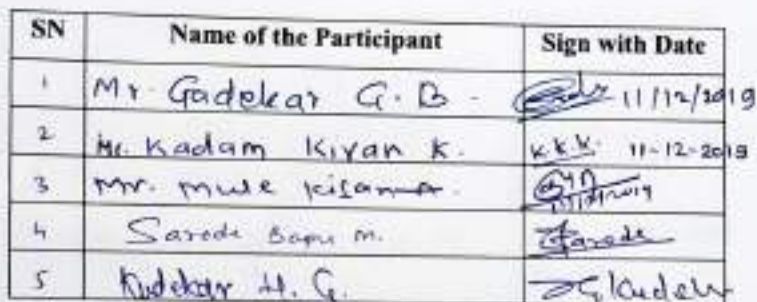 SN Name of the Participant Sign with Date
1 Mr. Gadekar G. B. 11/12/2019
2 Mr. Kadam Kiran K. K.K.K. 11-12-2019
3 Mr. Mule Kisan
4 Sarode Bapu M. Sarode
5 Kudekar H. G.